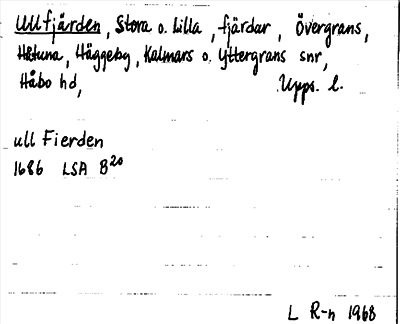 Ullfjärden, Stora o. Lilla, fjärdar, Övergrans,
Håtuna, Häggeby, Kalmars o. Yttergrans snr,
Håbo hd, Upps. l.
ull Fierden
1686 LSA B20
L R-n 1968